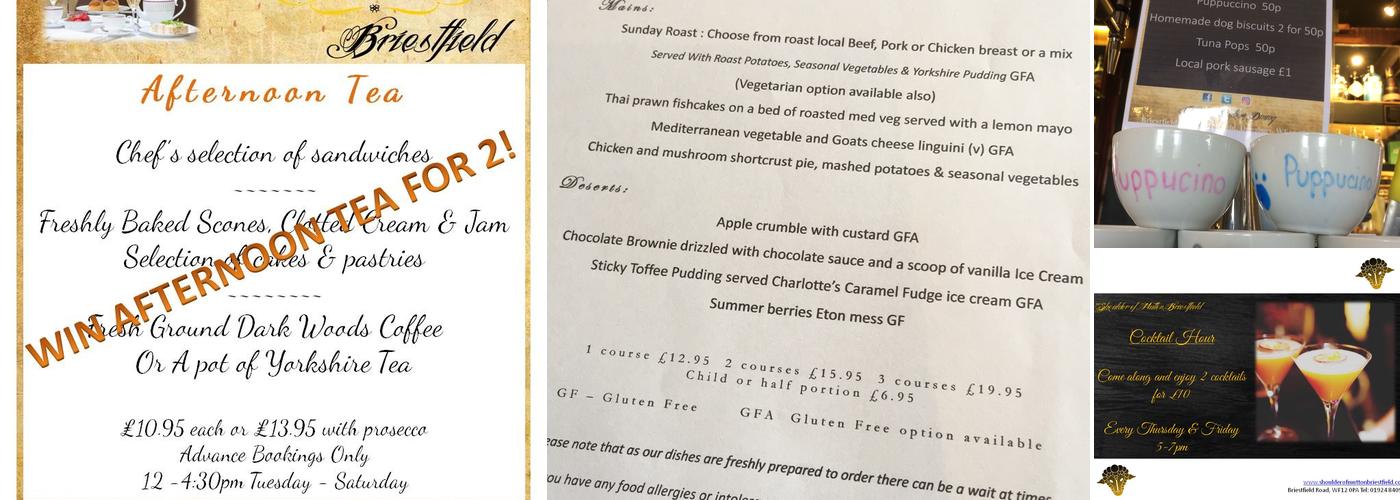 Briestfield
Afternoon Tea
Chef's selection of sandwiches
~~~~~~~
Freshly Baked Scones, Clotted Cream & Jam
Selection of cakes & pastries
~~~~~~~~
Fresh Ground Dark Woods Coffee
Or A pot of Yorkshire Tea
WIN AFTERNOON TEA FOR 2!
£10.95 each or £13.95 with prosecco
Advance Bookings Only
12 -4:30pm Tuesday - Saturday
Mains:
Sunday Roast : Choose from roast local Beef, Pork or Chicken breast or a mix
Served With Roast Potatoes, Seasonal Vegetables & Yorkshire Pudding GFA
(Vegetarian option available also)
Thai prawn fishcakes on a bed of roasted med veg served with a lemon mayo
Mediterranean vegetable and Goats cheese linguini (v) GFA
Chicken and mushroom shortcrust pie, mashed potatoes & seasonal vegetables
Deserts:
Apple crumble with custard GFA
Chocolate Brownie drizzled with chocolate sauce and a scoop of vanilla Ice Cream
Sticky Toffee Pudding served Charlotte's Caramel Fudge ice cream GFA
Summer berries Eton mess GF
1 course £12.95 2 courses £15.95 3 courses £19.95
Child or half portion £6.95
GF – Gluten Free GFA Gluten Free option available
ease note that as our dishes are freshly prepared to order there can be a wait at times
ou have any food allergies or
Puppuccino 50p
Homemade dog biscuits 2 for 50p
Tuna Pops 50p
Local pork sausage £1
Puppucino
Puppucino
Shoulder of Mutton, Briestfield
Cocktail Hour
Come along and enjoy 2 cocktails
for £10
Every Thursday & Friday
5-7pm
www.shoulderofmuttonbriestfield.c
Briestfield Road, WF12 0PA Tel: 01924 840